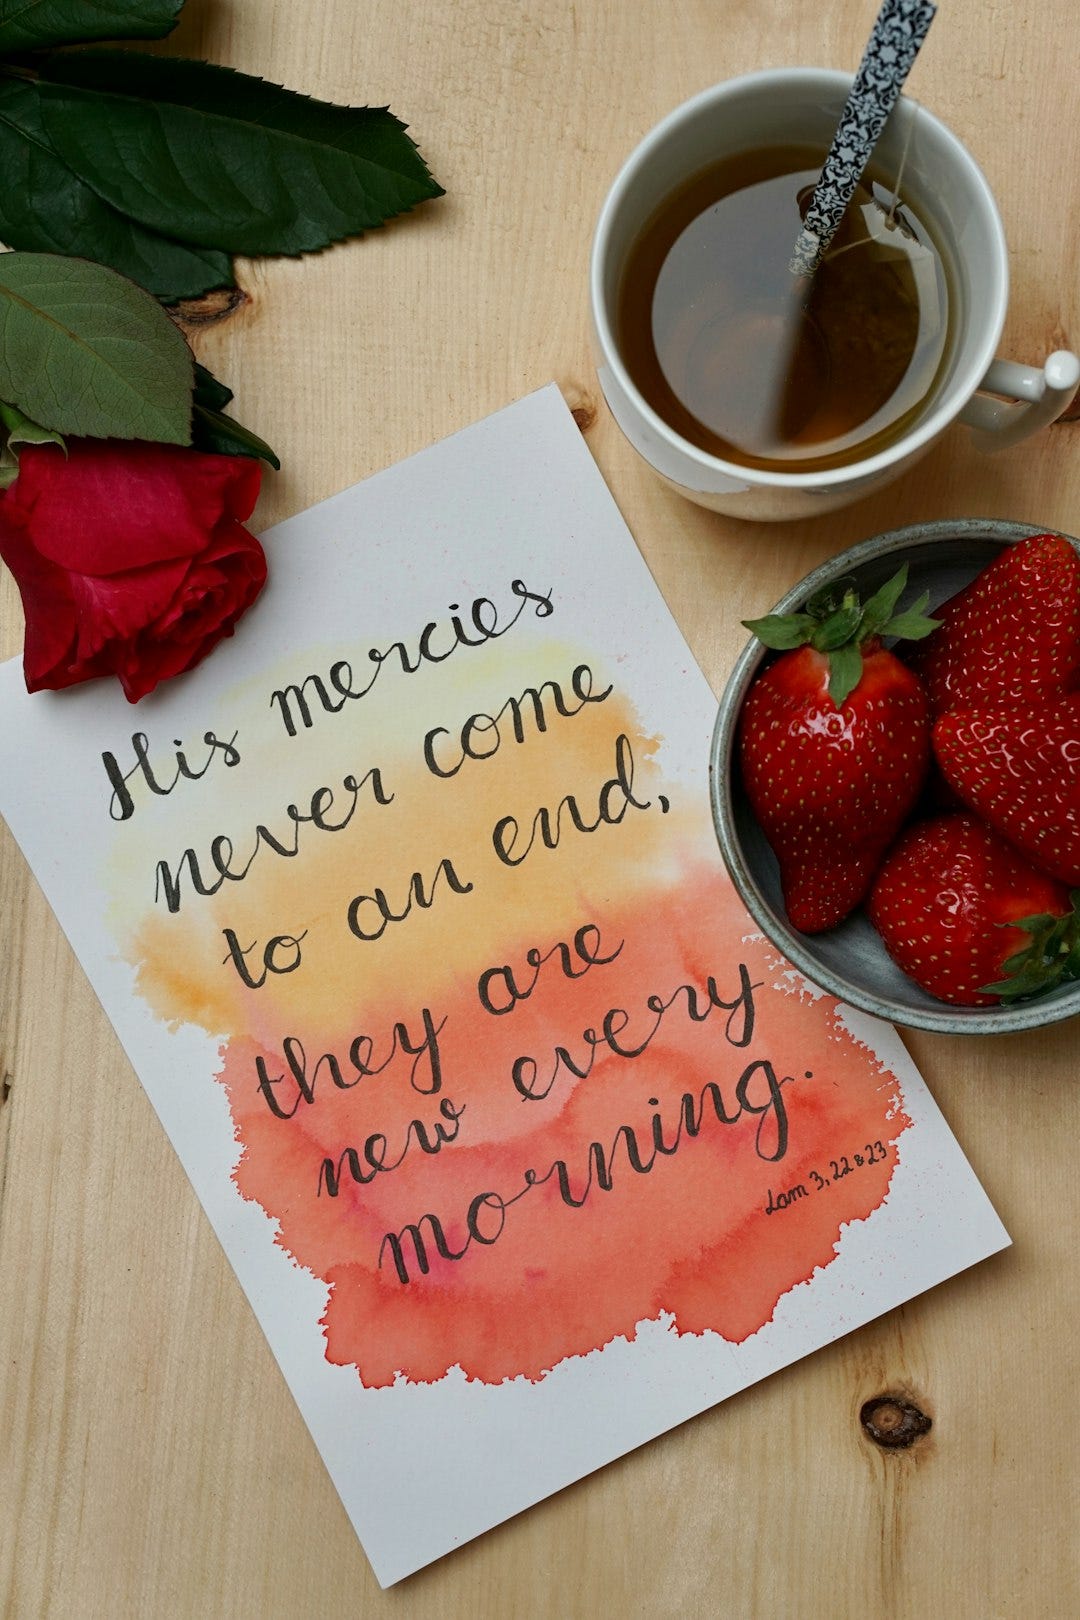 His mercies
never come
to an end,
they are
new every
morning.
Lam 3, 22 & 23